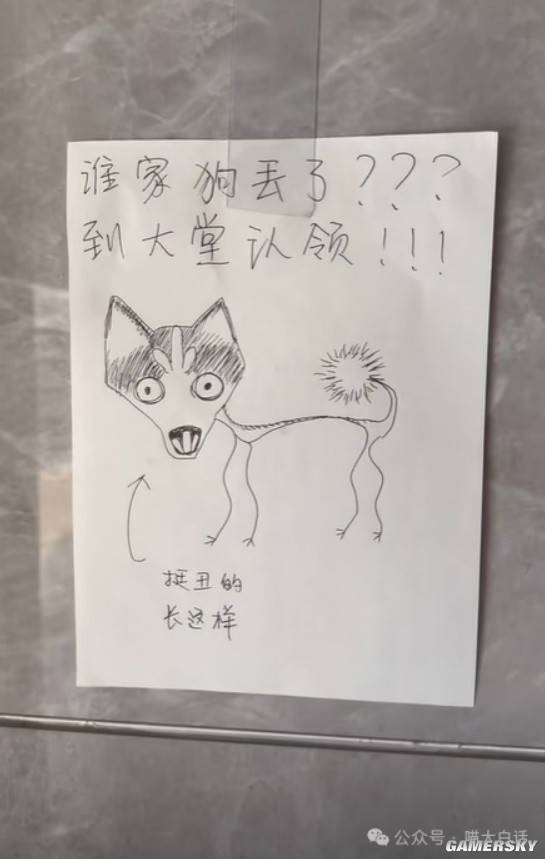 谁家狗丢了???
到大堂认领!!!
挺丑的
长这样
公众号·喵大白话
GAMERSKY